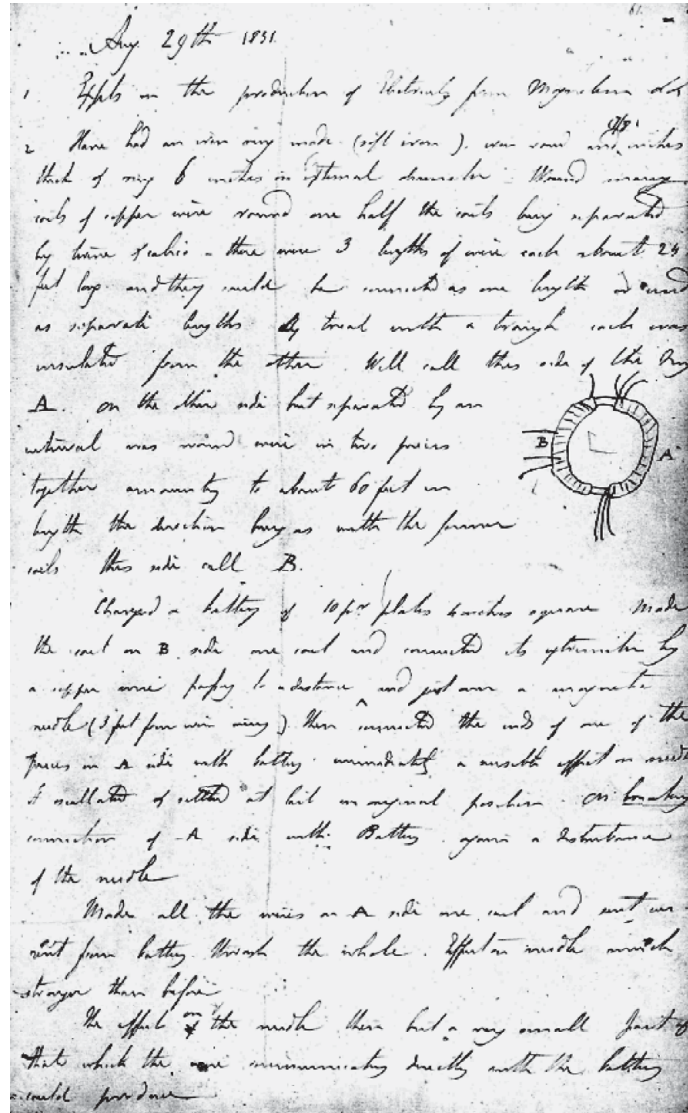 Aug 29th 1831.
1 Expts on the production of Electricity from Magnetism etc
2 Have had an iron ring made (soft iron), iron round and 7/8 inches
thick & ring 6 inches in external diameter. Wound many
coils of copper wire round one half the coils being separated
by twine & calico - there were 3 lengths of wire each about 24
feet long and they could be connected as one length or used
as separate lengths. By trial with a trough each was
insulated from the other. Will call this side of the ring
A. on the other side but separated by an
interval was wound wire in two pieces
together amounting to about 60 feet in
length the direction being as with the former
coils this side call B.
B A
Charged a battery of 10 pr plates 4 inches square. Made
the coil on B side one coil and connected its extremities by
a copper wire passing to a distance and just over a magnetic
needle (3 feet from iron ring). then connected the ends of one of the
pieces on A side with battery. immediately a sensible effect on needle
It oscillated & settled at last in original position. On breaking
connection of A side with Battery again a disturbance
of the needle
Made all the wires on A side one coil and sent cur
rent from battery through the whole. Effect on needle much
stronger than before
The effect on the needle then but a very small part of
that which the wire communicating directly with the battery
could produce